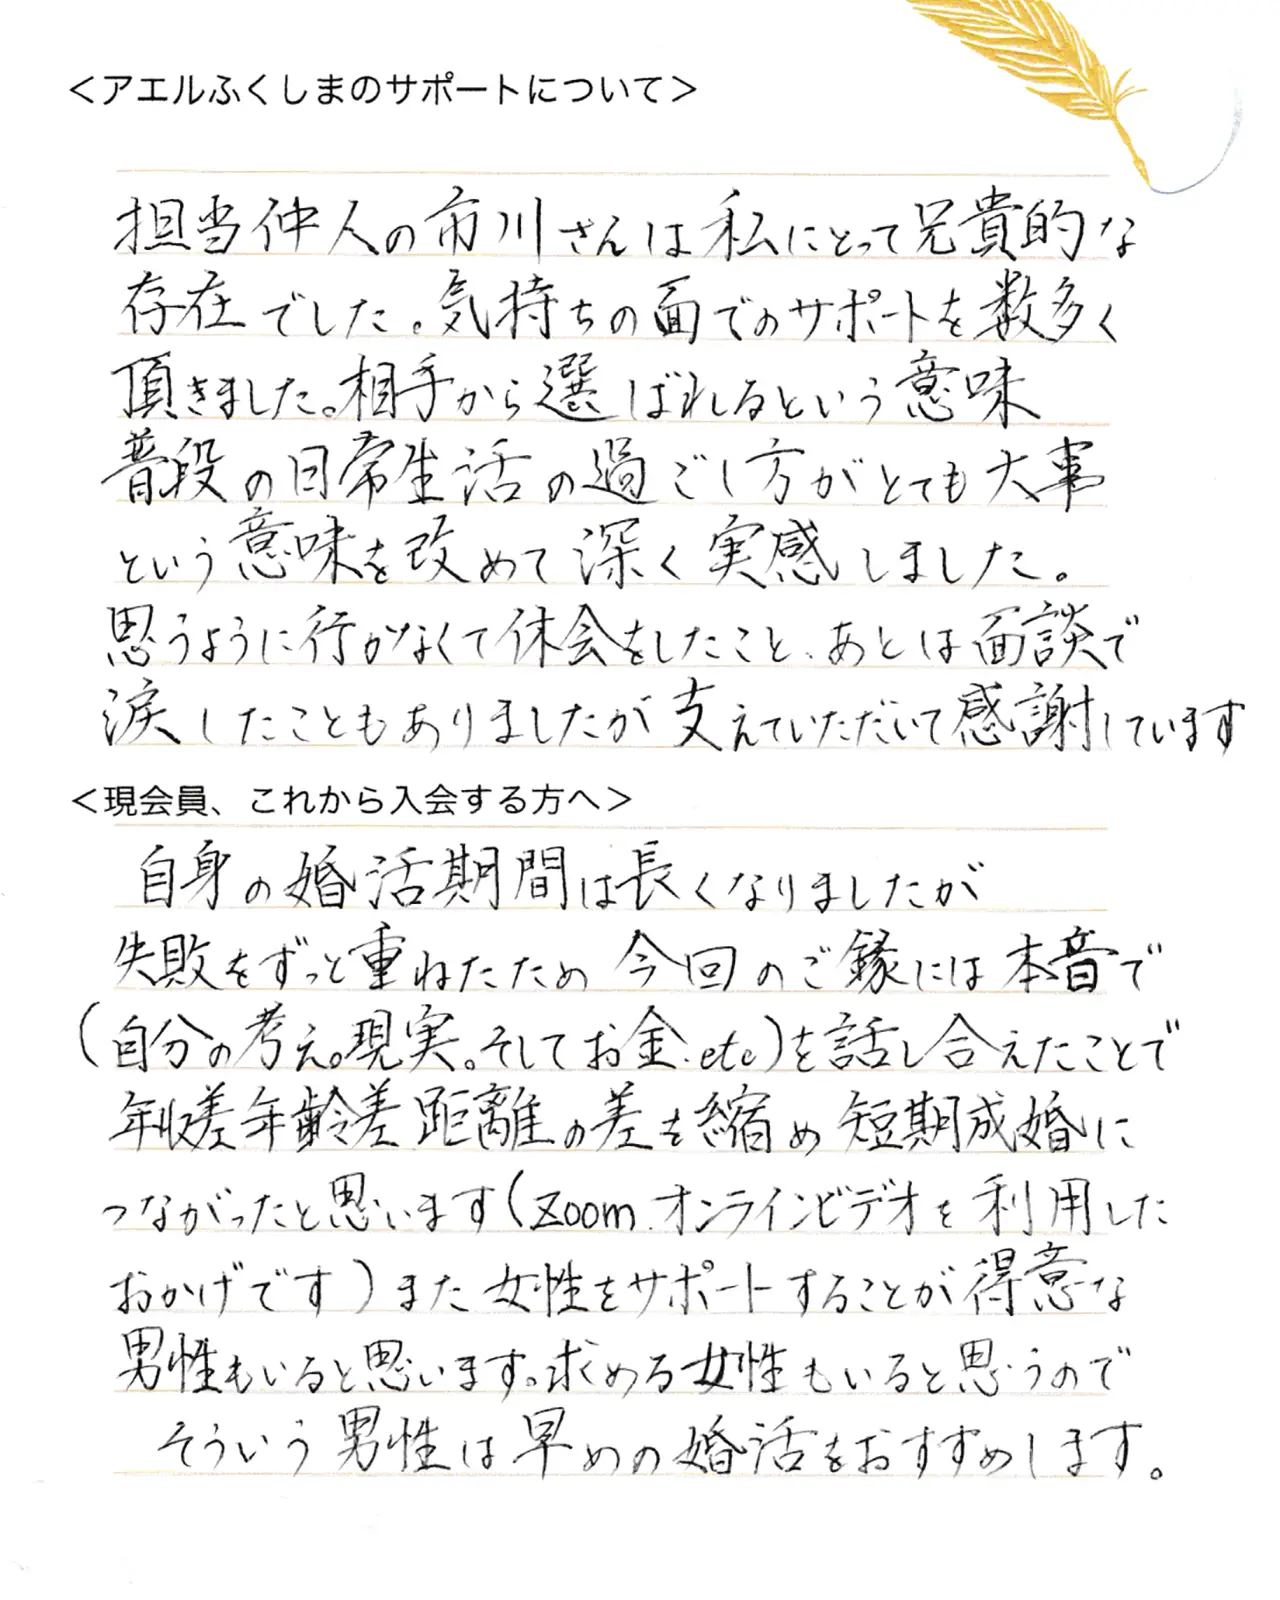 ＜アエルふくしまのサポートについて＞
担当仲人の市川さんは私にとって兄貴的な
存在でした。気持ちの面でのサポートを数多く
頂きました。相手から選ばれるという意味
普段の日常生活の過ごし方がとても大事
という意味を改めて深く実感しました。
思うように行かなくて休会をしたこと、あとは面談で
涙したこともありましたが支えていただいて感謝しています
＜現会員、これから入会する方へ＞
自身の婚活期間は長くなりましたが
失敗をずっと重ねたため今回のご縁には本音で
(自分の考え。現実。そしてお金.etc)を話し合えたことで
年収差年齢差距離の差を縮め短期成婚に
つながったと思います(Zoom.オンラインビデオを利用した
おかげです)また女性をサポートすることが得意な
男性もいると思います。求める女性もいると思うので
そういう男性は早めの婚活をおすすめします。